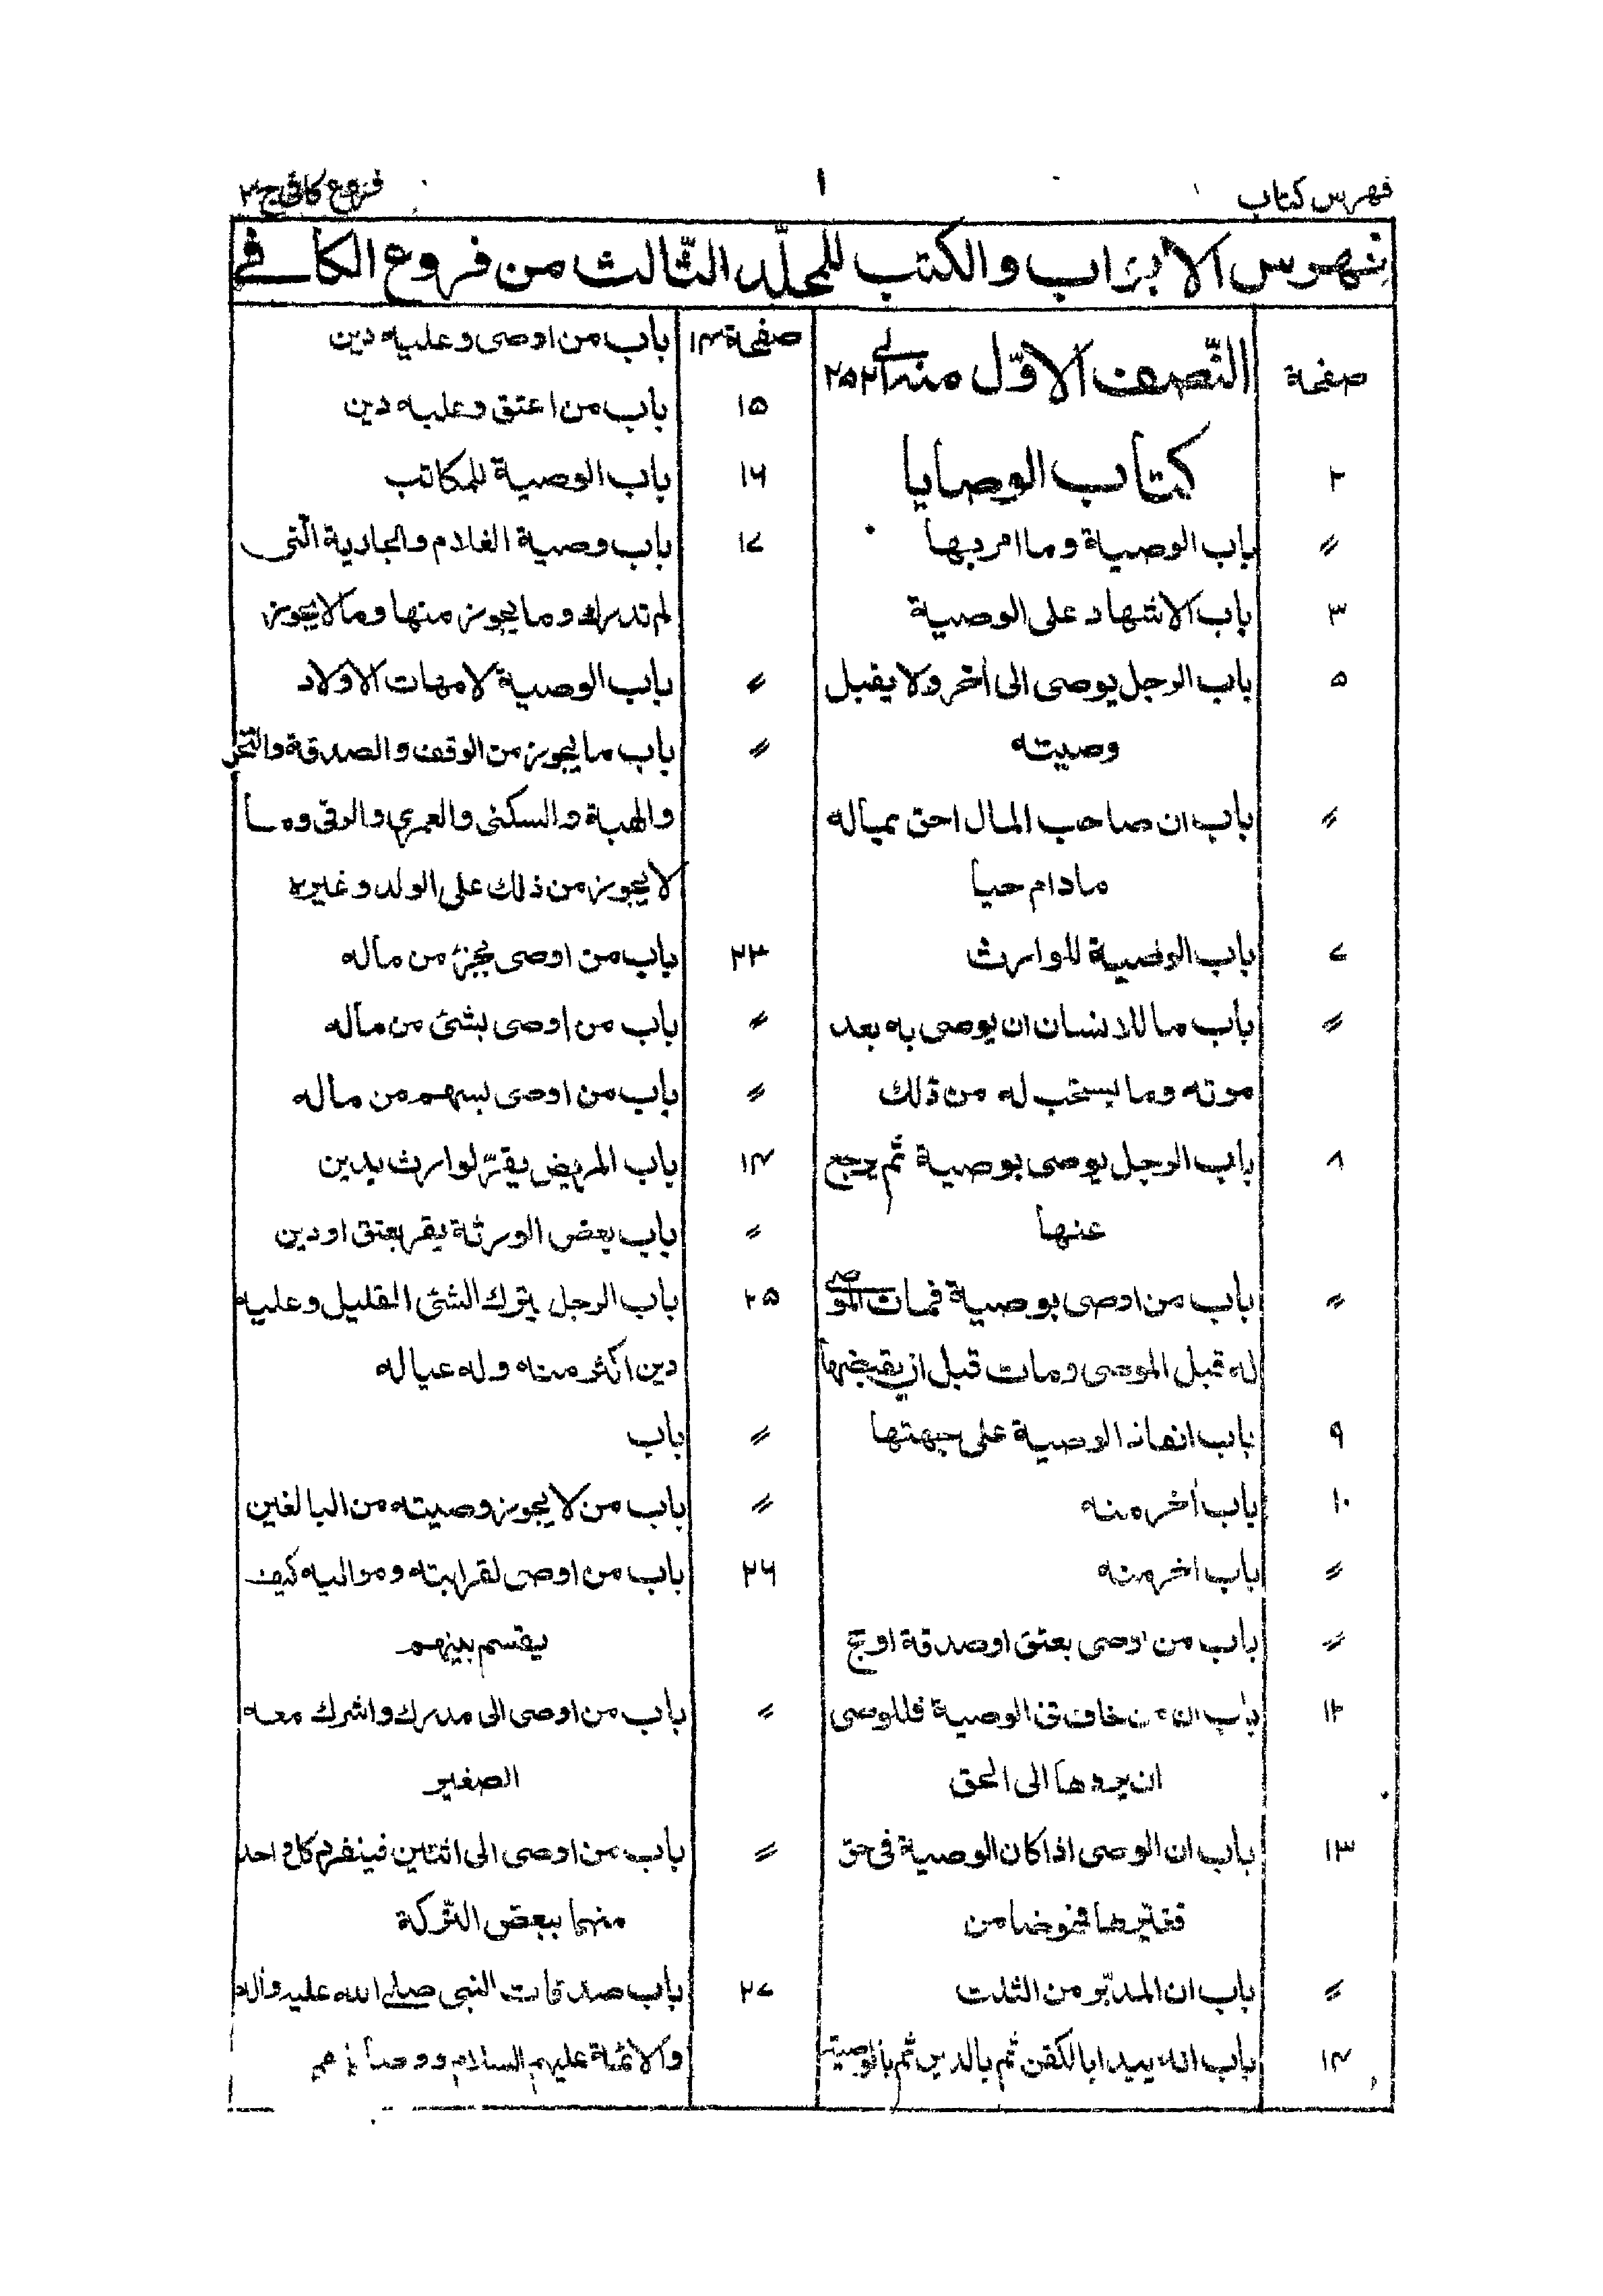 فهرس كتاب
١
فروع كافى ج٣
فهرس الابواب والكتب للمجلّد الثّالث من فروع الكافے
صفحة النّصف الاوّل منه الے ٢٥٢
٢ كتاب الوصايا
〃 باب الوصية وما امر بها
٣ باب الاشهاد على الوصية
٥ باب الرجل يوصى الى أخر ولا يقبل
وصيته
〃 باب ان صاحب المال احق بماله
مادام حيا
٧ باب الوصية للوارث
〃 باب ما للانسان ان يوصى به بعد
موته وما يستحب له من ذلك
٨ باب الرجل يوصى بوصية ثم يرجع
عنها
〃 باب من اوصى بوصية فمات الموصى
له قبل الموصى ومات قبل ان يقبضها
٩ باب انفاذ الوصية على جهتها
١٠ باب أخر منه
〃 باب اخر منه
〃 باب من اوصى بعتق او صدقة او حج
١٢ باب ان من خاف فى الوصية فللوصى
ان يردها الى الحق
١٣ باب ان الوصى اذا كان الوصية فى حق
فغيرها فهو ضامن
〃 باب ان المدبّر من الثلث
١٤ باب انه يبدا بالكفن ثم بالدين ثم بالوصية
صفحة ١٤ باب من اوصى وعليه دين
١٥ باب من اعتق وعليه دين
١٦ باب الوصية للمكاتب
١٧ باب وصية الغلام والجارية الّتى
لم تدرك وما يجوز منها وما لا يجوز
〃 باب الوصية لامهات الاولاد
〃 باب ما يجوز من الوقف والصدقة والنّحل
والهبة والسكنى والعمرى والرقبى وما
لا يجوز من ذلك على الولد وغيره
٢٣ باب من اوصى بجزء من ماله
〃 باب من اوصى بشئ من ماله
〃 باب من اوصى بسهم من ماله
١٤ باب المريض يقرّ لوارث بدين
〃 باب بعض الورثة يقر بعتق او دين
٢٥ باب الرجل يترك الشئ القليل وعليه
دين اكثر منه وله عياله
〃 باب
〃 باب من لا يجوز وصيته من البالغين
٢٦ باب من اوصى لقرابته ومواليه كيف
يقسم بينهم
〃 باب من اوصى الى مدرك واشرك معه
الصغير
〃 باب من اوصى الى اثنين فينفرد كل واحد
منهما ببعض التّركة
٢٧ باب صدقات النبى صلے الله عليه واٰله
والائمّة عليهم السلام ووصاياهم